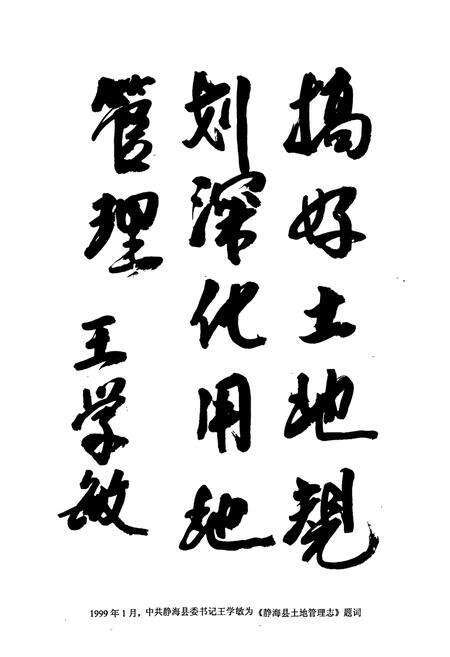 搞好土地规
划深化用地
管理
王学敏
1999年1月，中共静海县委书记王学敏为《静海县土地管理志》题词